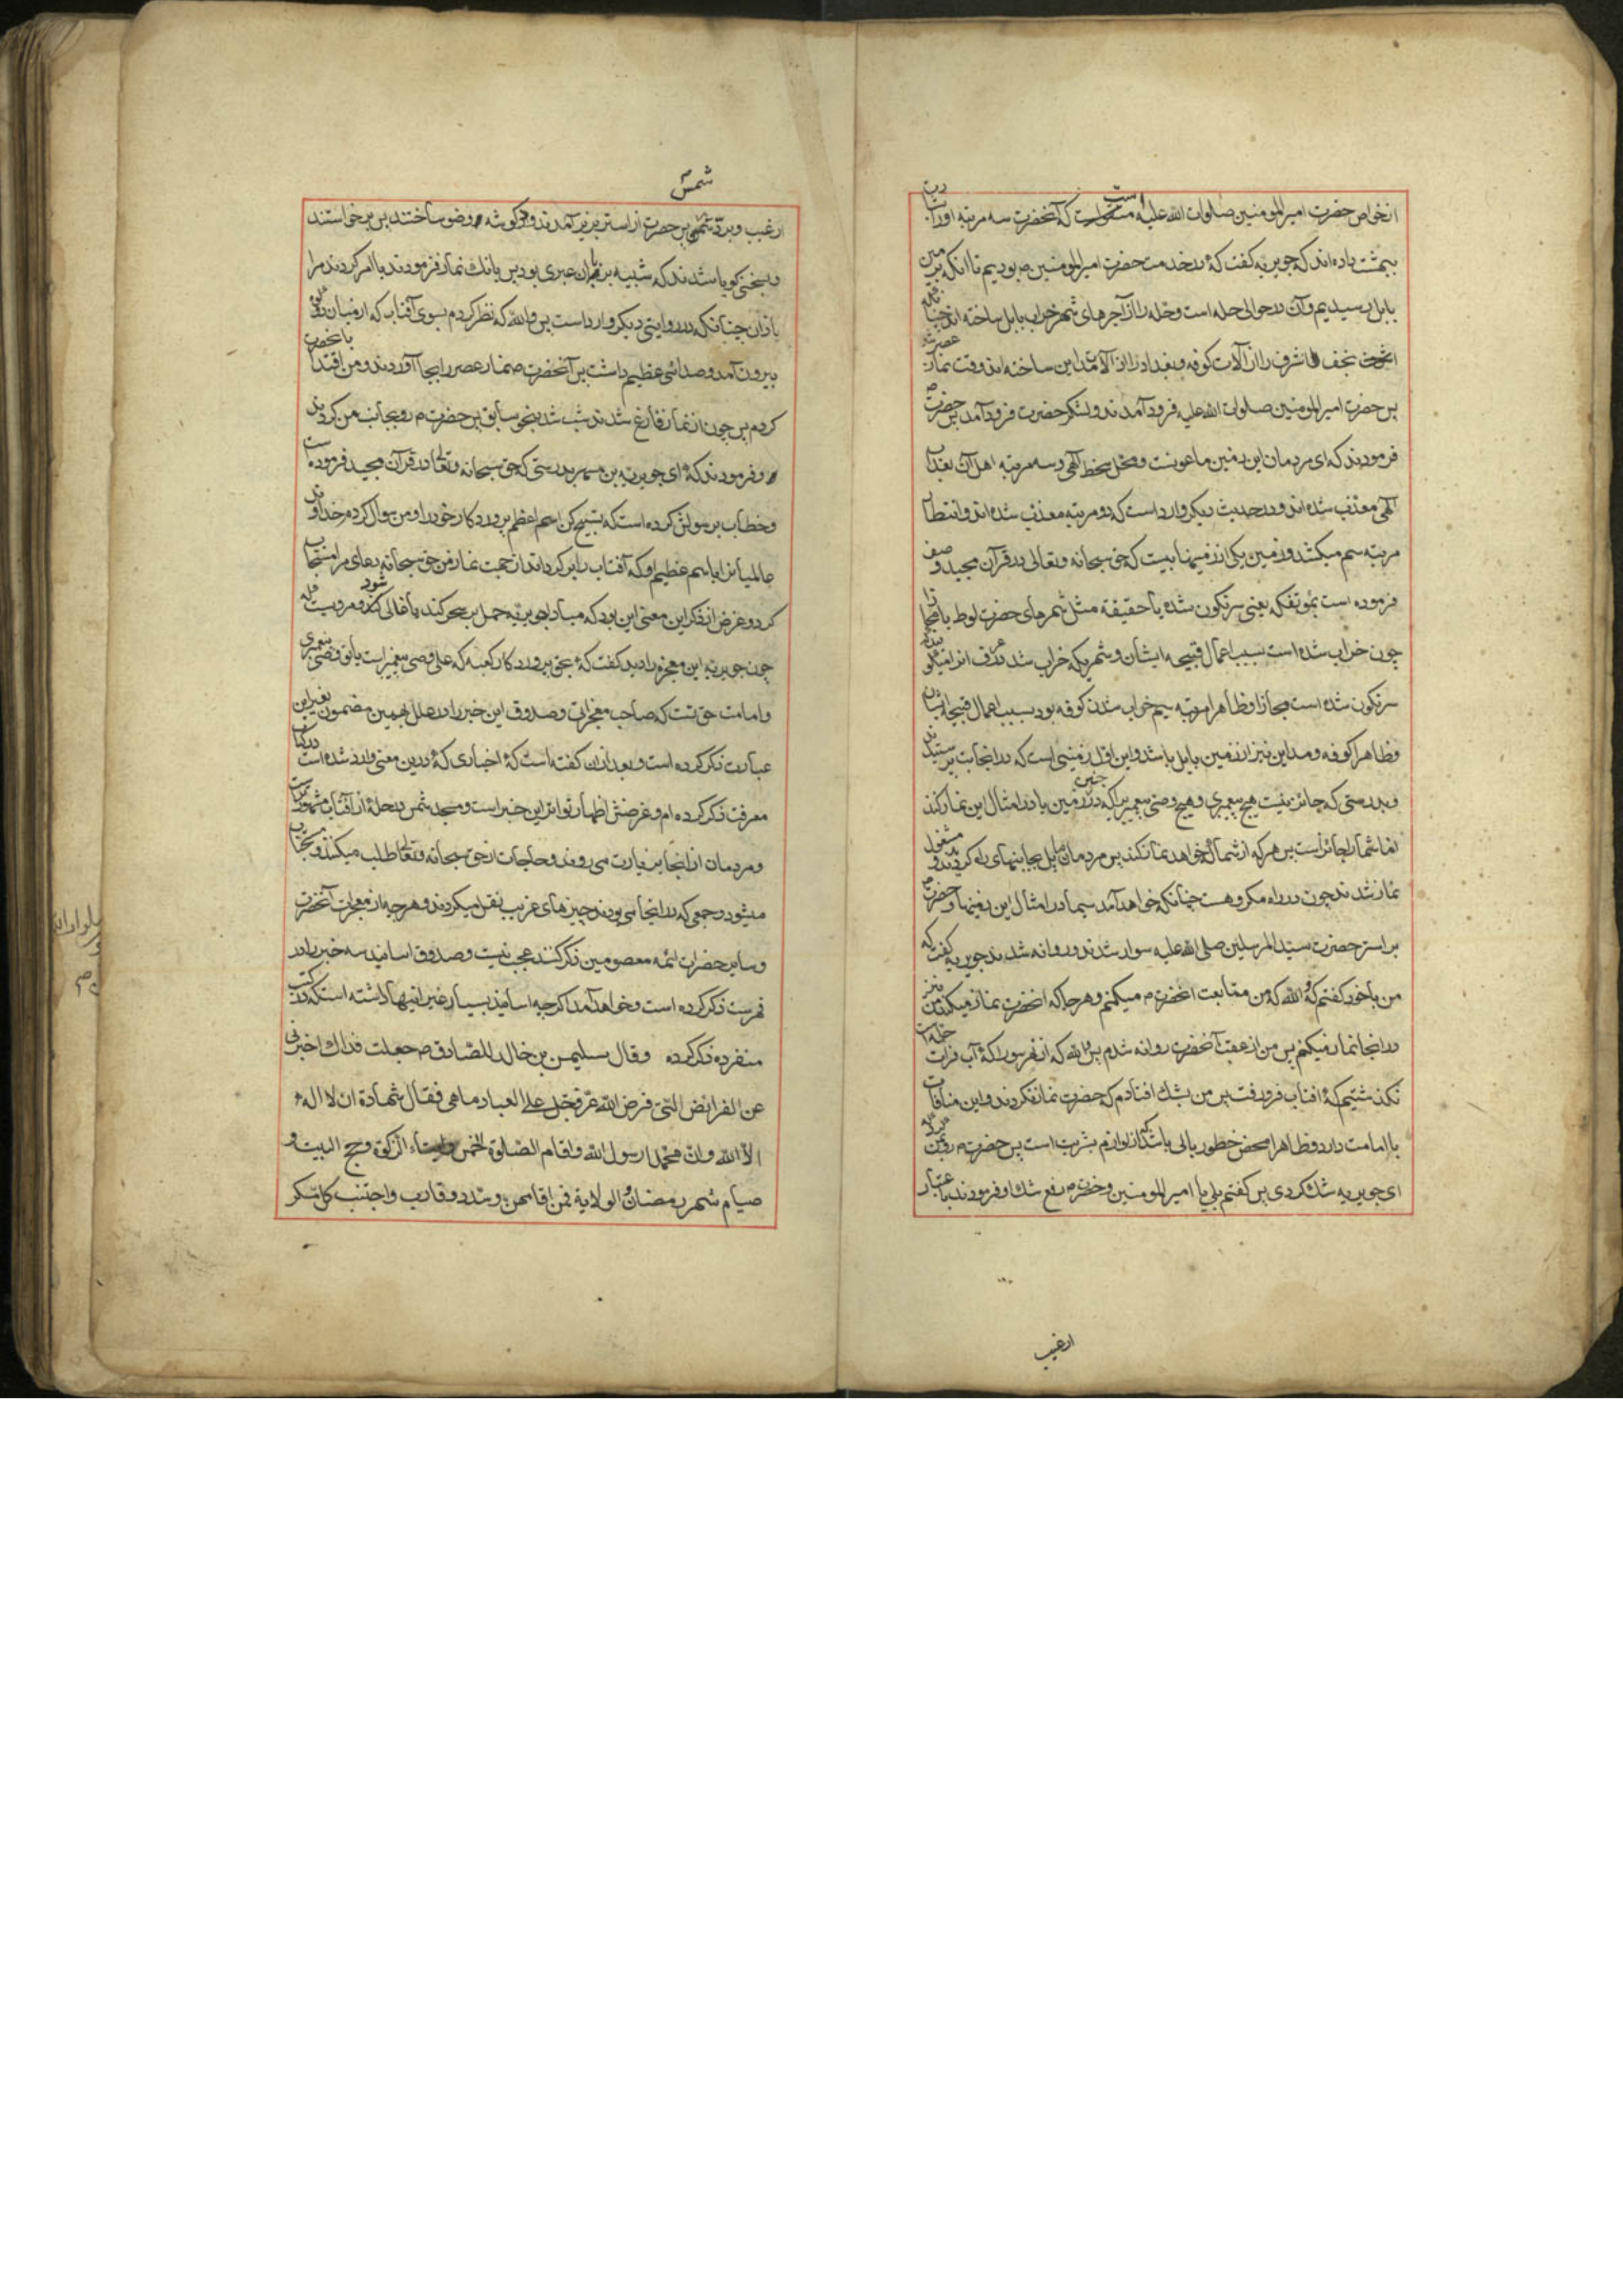 از خواص حضرت امیر المومنین صلوات الله علیه است که آنحضرت سه مرتبه او را بشارت
ببهشت داده اند که جویریه گفت که در خدمت حضرت امیر المومنین ص بودیم تا انکه بزمین
بابل رسیدیم وآن در حوالی حله است وحله را از آجرهای شهر خراب بابل ساخته اند چنانکه
نجف اشرف را از آلات کوفه وبغداد را از آلات مداین ساخته اند وقت نماز عصر شد
پس حضرت امیر المومنین صلوات الله علیه فرود آمدند ولشکر حضرت فرود آمد پس حضرت
فرمودند که ای مردمان این زمین ملعونست ومحل سخط الهی وسه مرتبه اهل آن بعذاب
الهی معذب شده اند ودر حدیث دیکر وارد است که دو مرتبه معذب شده اند وانتظار
مرتبه سیم میکشد وزمین یکی از زمینهاییست که حق سبحانه وتعالی در قرآن مجید وصف
فرموده است بمؤتفکه یعنی سرنکون شده یا حقیقة مثل شهرهای حضرت لوط یا مجازا
چون خراب شده است بسبب اعمال قبیحه ایشان وشهریکه خراب شد
سرنکون شده است مجازا وظاهرا مرتبه سیم خراب شدن کوفه بود بسبب اعمال قبیحه ایشان
وظاهرا کوفه ومداین نیز از زمین بابل باشد واین اول زمینی است که در انجا بت پرستیدند
وبدرستی که جائز نیست هیچ پیغمبری وهیچ وصی پیغمبریرا که در چنین زمین یا در امثال این نماز کند
اما شما را جائز است پس هر که از شما خواهد نماز کند پس مردمان مایل بجانبهای راه کردیدند و مشغول
نماز شدند چون در راه مکروهست چنانکه خواهد آمد سیما در امثال این زمینها وحضرت
بر استر حضرت سید المرسلین صلی الله علیه سوار شدند وروانه شدند جویریه گفت که
من با خود کفتم که والله که من متابعت انحضرت م میکنم وهر جا که انحضرت نماز میکند من نیز
در انجا نماز میکنم پس من از عقب آنحضرت روانه شدم پس والله که از نهر سورا که آب فرات حله است
نکذشتیم که افتاب فرو رفت پس من بشک افتادم که حضرت نماز نکردند واین منافات
با امامت دارد وظاهرا محض خطور بالی باشد که از لوازم بشریت است پس حضرت م رو بمن کرد که
ای جویریه شک کردی پس کفتم بلی یا امیر المومنین وحضرت رفع شک او فرمودند باعتبار
ارغیب
شمس
ارغیب وبردّ شمس پس حضرت از استر بزیر آمدند و در کوشه وضو ساختند پس برخواستند
وبسخنی کویا شدند که شبیه بزبان عبری بود پس بانک نماز فرمودند یا امر کردند مرا
باذان چنانکه در روایتی دیکر وارد است پس والله که نظر کردم بسوی آفتاب که از میان دو کوه
بیرون آمد وصدائی عظیم داشت پس آنحضرت نماز عصر را بجا آوردند ومن اقتدا بانحضرت
کردم پس چون از نماز فارغ شدند شب شد بنحو سابق پس حضرت م رو بجانب من کردند
وفرمودند که ای جویریه بن مسهر بدرستی که حق سبحانه وتعالی در قرآن مجید فرموده است
وخطاب برسولش کرده است که تسبیح کن اسم اعظم پروردکار خود را ومن سوال کردم خداوند
عالمیانرا باسم عظیم او که آفتاب را برکرداند از جهت نماز من حق سبحانه دعای مرا مستجاب
کرد وغرض از ذکر این معنی این بود که مبادا جویریه حمل بر سحر کند یا غالی شود ومرویست که
چون جویریه این معجزه را دید کفت که بحق پروردکار کعبه که علی وصی پیغمبر است یا تو وصی پیغمبری
وامامت حق تست که صاحب معجزاتی وصدوق این خبر را در علل بهمین مضمون بغیر این
عبارت ذکر کرده است وبعد از ان کفته است که اخباری که درین معنی وارد شده است در کتاب
معرفت ذکر کرده ام وغرضش اظهار تواتر این خبر است ومسجد شمس در حله از آفتاب مشهورتر است
ومردمان از انجا بزیارت می روند وحاجات از حق سبحانه وتعالی طلب میکنند ومستجاب
میشود وجمعی که در انجا می بودند چیزهای غریب نقل میکردند وهر چه از معجزات آنحضرت
وسایر حضرات ائمه معصومین ذکر کنند عجب نیست وصدوق اسانید سه خبر را در
فهرست ذکر کرده است وخواهد آمد اکر چه اسانید بسیار غیر اینها داشته است که در کتب
منفرده ذکر کرده وقال سلیمن بن خالد للصّادق ص جعلت فداك اخبرنی
عن الفرائض التی فرض الله عزّ وجلّ علی العباد ما هی فقال شهادة ان لا اله
الا الله وانّ محمّدا رسول الله واقام الصّلوة الخمس وایتاء الزکوة وحج البیت و
صیام شهر رمضان والولایة فمن اقامهن وسدد وقارب واجتنب کل مسکر